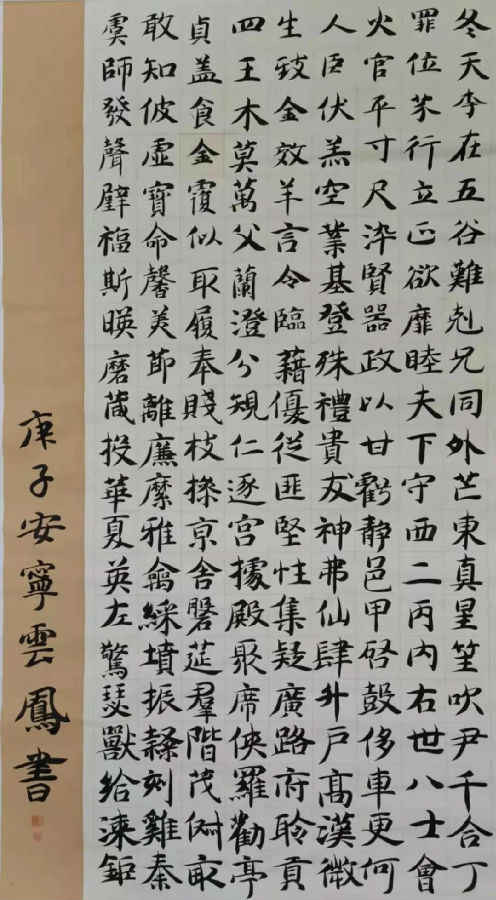 冬天李在五谷難剋兄同外芒東真星笙吹尹千合丁
罪位芥行立正欲靡睦夫下守西二丙内右世八士會
火官平寸尺染賢器政以甘虧静邑甲啓鼓侈車更何
人臣伏羔空業基登殊禮貴友神弗仙肆升户高漢微
生金效羊言令臨藉優從匪堅性集疑廣路府聆貢
四王木莫萬父蘭澄分規仁逐宫據殿聚席俠羅勸亭
貞盖食金覆似取履奉賤枝操京舍磬莚羣階茂
敢知彼虚寶命馨美節離廉縻雅禽綵墳振隸刻雞秦
虞師發聲壁福斯暎磨箴投華夏英左驚瑟獸給涑鉅
庚子安寧雲鳳書